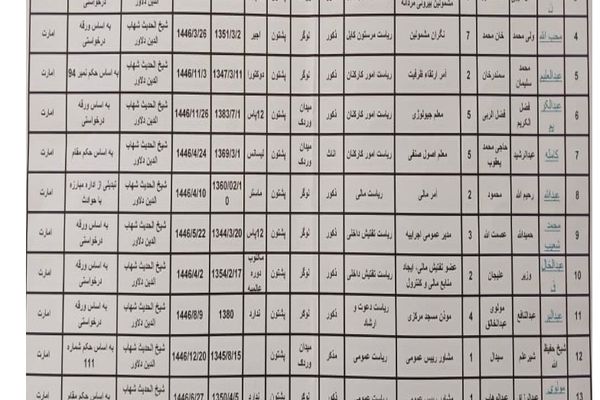 مشمولین بیرونی مردانه الدین دلاور درخواستی
4 محب الله ولی محمد خان محمد 7 نگران مشمولین ریاست مرستون کابل ذکور لوگر پشتون اجیر 1351/3/2 1446/3/26 شیخ الحدیث شهاب الدین دلاور به اساس ورقه درخواستی امارت
5 عبدالعلیم محمد سلیمان سمندرخان 2 آمر ارتقاء ظرفیت ریاست امور کارکنان ذکور لوگر پشتون دوکتورا 1347/3/11 1446/11/3 شیخ الحدیث شهاب الدین دلاور به اساس حکم نمبر 94 امارت
6 عبدالکریم فضل الکریم فضل الربی 5 معلم جیولوژی ریاست امور کارکنان ذکور میدان وردک پشتون 12پاس 1383/7/1 1446/11/26 شیخ الحدیث شهاب الدین دلاور به اساس ورقه درخواستی امارت
7 کامله عبدالرشید حاجی محمد یعقوب 5 معلم اصول صنفی ریاست امور کارکنان اناث میدان وردک پشتون لیسانس 1369/3/1 1446/4/24 شیخ الحدیث شهاب الدین دلاور به اساس حکم مقام امارت
8 عبدالله رحیم الله محمود 2 آمر مالی ریاست مالی ذکور لوگر پشتون ماستر 1360/02/10 1446/4/10 شیخ الحدیث شهاب الدین دلاور تبدیلی از اداره مبارزه با حوادث امارت
9 محمد شعیب حمیدالله عصمت الله 3 مدیر عمومی اجراییه ریاست تفتیش داخلی ذکور لوگر پشتون 12پاس 1344/3/20 1446/5/22 شیخ الحدیث شهاب الدین دلاور به اساس ورقه درخواستی امارت
10 عبدالخالق وزیر علیجان 2 عضو تفتیش مالی، ایجاد منابع مالی و کنترول ریاست تفتیش داخلی ذکور لوگر پشتون دوره عالمیه 1354/2/17 1446/4/2 شیخ الحدیث شهاب الدین دلاور به اساس ورقه درخواستی امارت
11 عبدالبر عبدالنافع مولوی عبدالخالق 4 موذن مسجد مرکزی ریاست دعوت و ارشاد ذکور لوگر پشتون ندارد 1380 1446/8/9 شیخ الحدیث شهاب الدین دلاور به اساس ورقه درخواستی امارت
12 شیخ حفیظ الله شیرعلم سیدال 1 مشاور رییس عمومی ریاست عمومی مذکر میدان وردک پشتون 1345/8/15 1446/12/20 شیخ الحدیث شهاب الدین دلاور به اساس حکم شماره 111 امارت
13 مولوی عبدالرزاق عبدالوهاب 1 مشاور رییس عمومی ریاست عمومی ذکور لوگر پشتون ندارد 1350/4/5 1446/6/27 شیخ الحدیث شهاب به اساس حکم مقام امارت